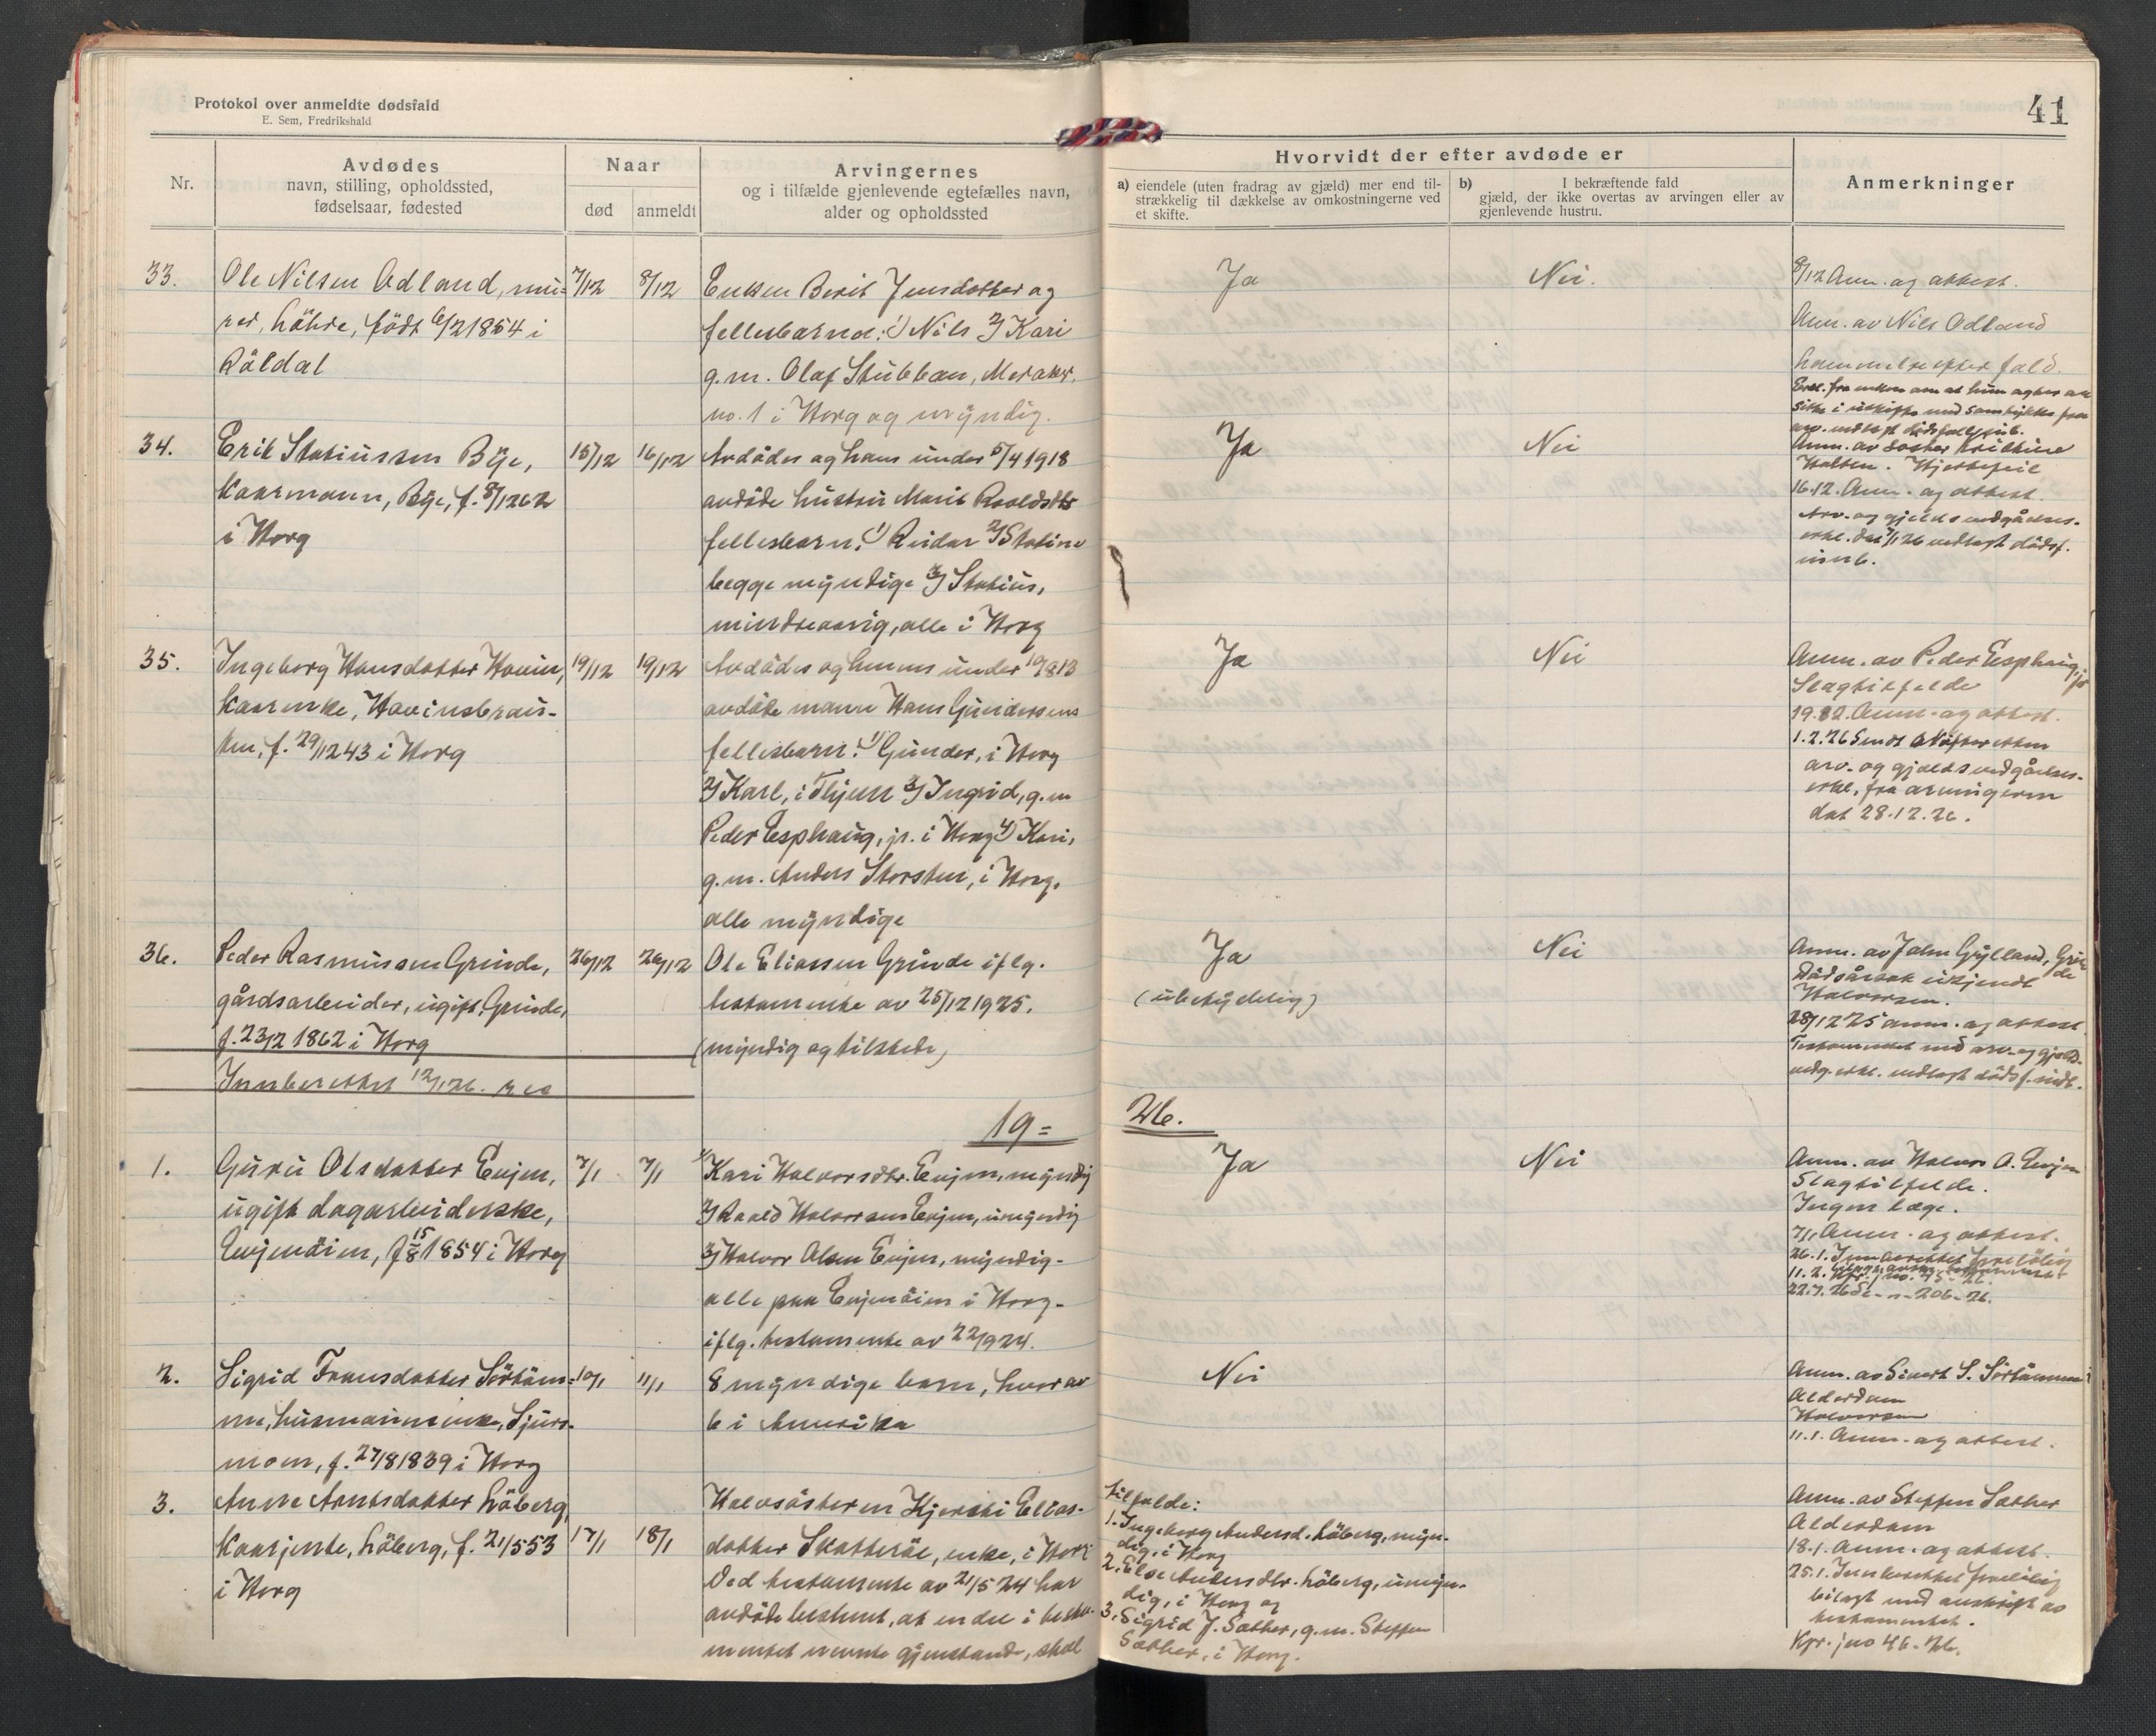 Protokol over anmeldte dødsfald
E. Sem, Fredrikshald
41
Nr.
Avdødes
navn, stilling, opholdssted,
fødselsaar, fødested
Naar
død
anmeldt
Arvingernes
og i tilfælde gjenlevende egtefælles navn,
alder og opholdssted
Hvorvidt der efter avdøde er
a) eiendele (uten fradrag av gjæld) mer end til-
strækkelig til dækkelse av omkostningerne ved
et skifte.
b) I bekræftende fald
gjæld, der ikke overtas av arvingen eller av
gjenlevende hustru.
Anmerkninger
33.
Ole Nilsen Odland, mu-
rer, Löhre, födt 6/2 1854 i
Röldal
7/12
8/12
Enken Berit Jensdotter og
fellesbarna: 1) Nils 2) Kari
g.m. Olaf Stubban, Meraker,
no. 1 i Horg og myndig.
Ja
Nei.
8/12 Anm. og attest.
Anm. av Nils Odland
34.
Erik Statiussen Bye,
Kaarmann, Bye, f. 8/12 62
i Horg
15/12
16/12
Avdödes og hans under 5/4 1918
avdöde hustru Marit Roaldsdtr
fellesbarn: 1) Reidar 2) Statine
begge myndige 3) Statius,
mindreaarig, alle i Horg
Ja
Nei
16.12. Anm. og attest.
Arv. og gjelds vedgåelses-
erkl. dat 7/1 26 vedlagt dödsf.
innb.
35.
Ingeborg Hansdotter Hovin,
Kaarenke, Hovinsbrau-
ten, f. 29/12 43 i Horg
19/12
19/12
Avdödes og hennes under 19/8 13
avdöde mann Hans Gundersens
fellesbarn: 1) Gunder, i Horg
2) Karl, i Flyum 3) Ingrid, g.m
Peder Esphaug, jr. i Horg 4) Kari,
g.m. Anders Storsten, i Horg.
alle myndige
Ja
Nei
Anm. av Peder Esphaug, jr
Slagtilfelde
19.12. Anm. og attest.
1.2.26 Sendt
arv. og gjelds vedgåelses-
erkl. fra arvingerne
dat 28.12.26.
36.
Peder Rasmussen Grinde,
gårdsarbeider, ugift, Grinde,
f. 23/2 1862 i Horg
26/12
26/12
Ole Eliassen Grinde iflg.
testamente av 25/12 1925.
(myndig og tilstede)
Ja
(ubetydelig)
Nei
Anm. av John Gylland, Grinde
Dödsårsak ukjendt
Halvorsen.
28/12 25 anm. og attest.
Testamentet med arv- og gjeld-
vedg. erkl. vedlagt dödsf. innb.
Innberettet 12/1 26.
19=
26.
1.
Guru Olsdotter Evjen,
ugift dagarbeiderske,
Evjenöien, f 15/8 1854 i Horg
7/1
7/1
1) Kari Halvorsdtr. Evjen, myndig
2) Roald Halvorsen Evjen, umyndig
3) Halvor Olsen Evjen, myndig -
alle paa Evjenöien i Horg -
iflg. testamente av 22/9 24.
Ja
Nei
Anm. av Halvor O. Evjen
Slagtilfelde.
Ingen læge.
7/1 Anm. og attest.
26.1. Innberettet foreløbig
11.2. Kpr. j no. 75-26.
22.7.26 de - " - 206-26.
2.
Sigrid Fransdotter Sörtöm-
me, husmannsenke, Sjurs-
moen, f. 27/8 1839 i Horg
10/1
11/1
8 myndige barn, hvorav
6 i Amerika
Nei
Anm. av Sivert S. Sörtömme
Alderdom
Halvorsen
11.1. Anm. og attest.
3.
Anne Arntsdotter Löberg,
Kaarjente, Löberg, f. 21/5 53
i Horg
17/1
18/1
Halvsösteren Kjersti Elias-
dotter Skotteröe, enke, i Horg
Ved testamente av 21/5 24 har
avdöde bestemt, at en del i testa-
mentet nevnte gjenstande, skal
tilfalde:
1. Ingeborg Andersd. Löberg, myn-
dig, i Horg
2. Else Andersdtr. Löberg, umyn-
dig, i Horg og
3. Sigrid J. Sæther, g.m. Steffen
Sæther, i Horg.
Anm. av Steffen Sæther
Alderdom
18.1. Anm. og attest.
25.1. Innberettet foreløbig
bilagt med avskrift av
testamentet.
Kpr. j no 46-26.